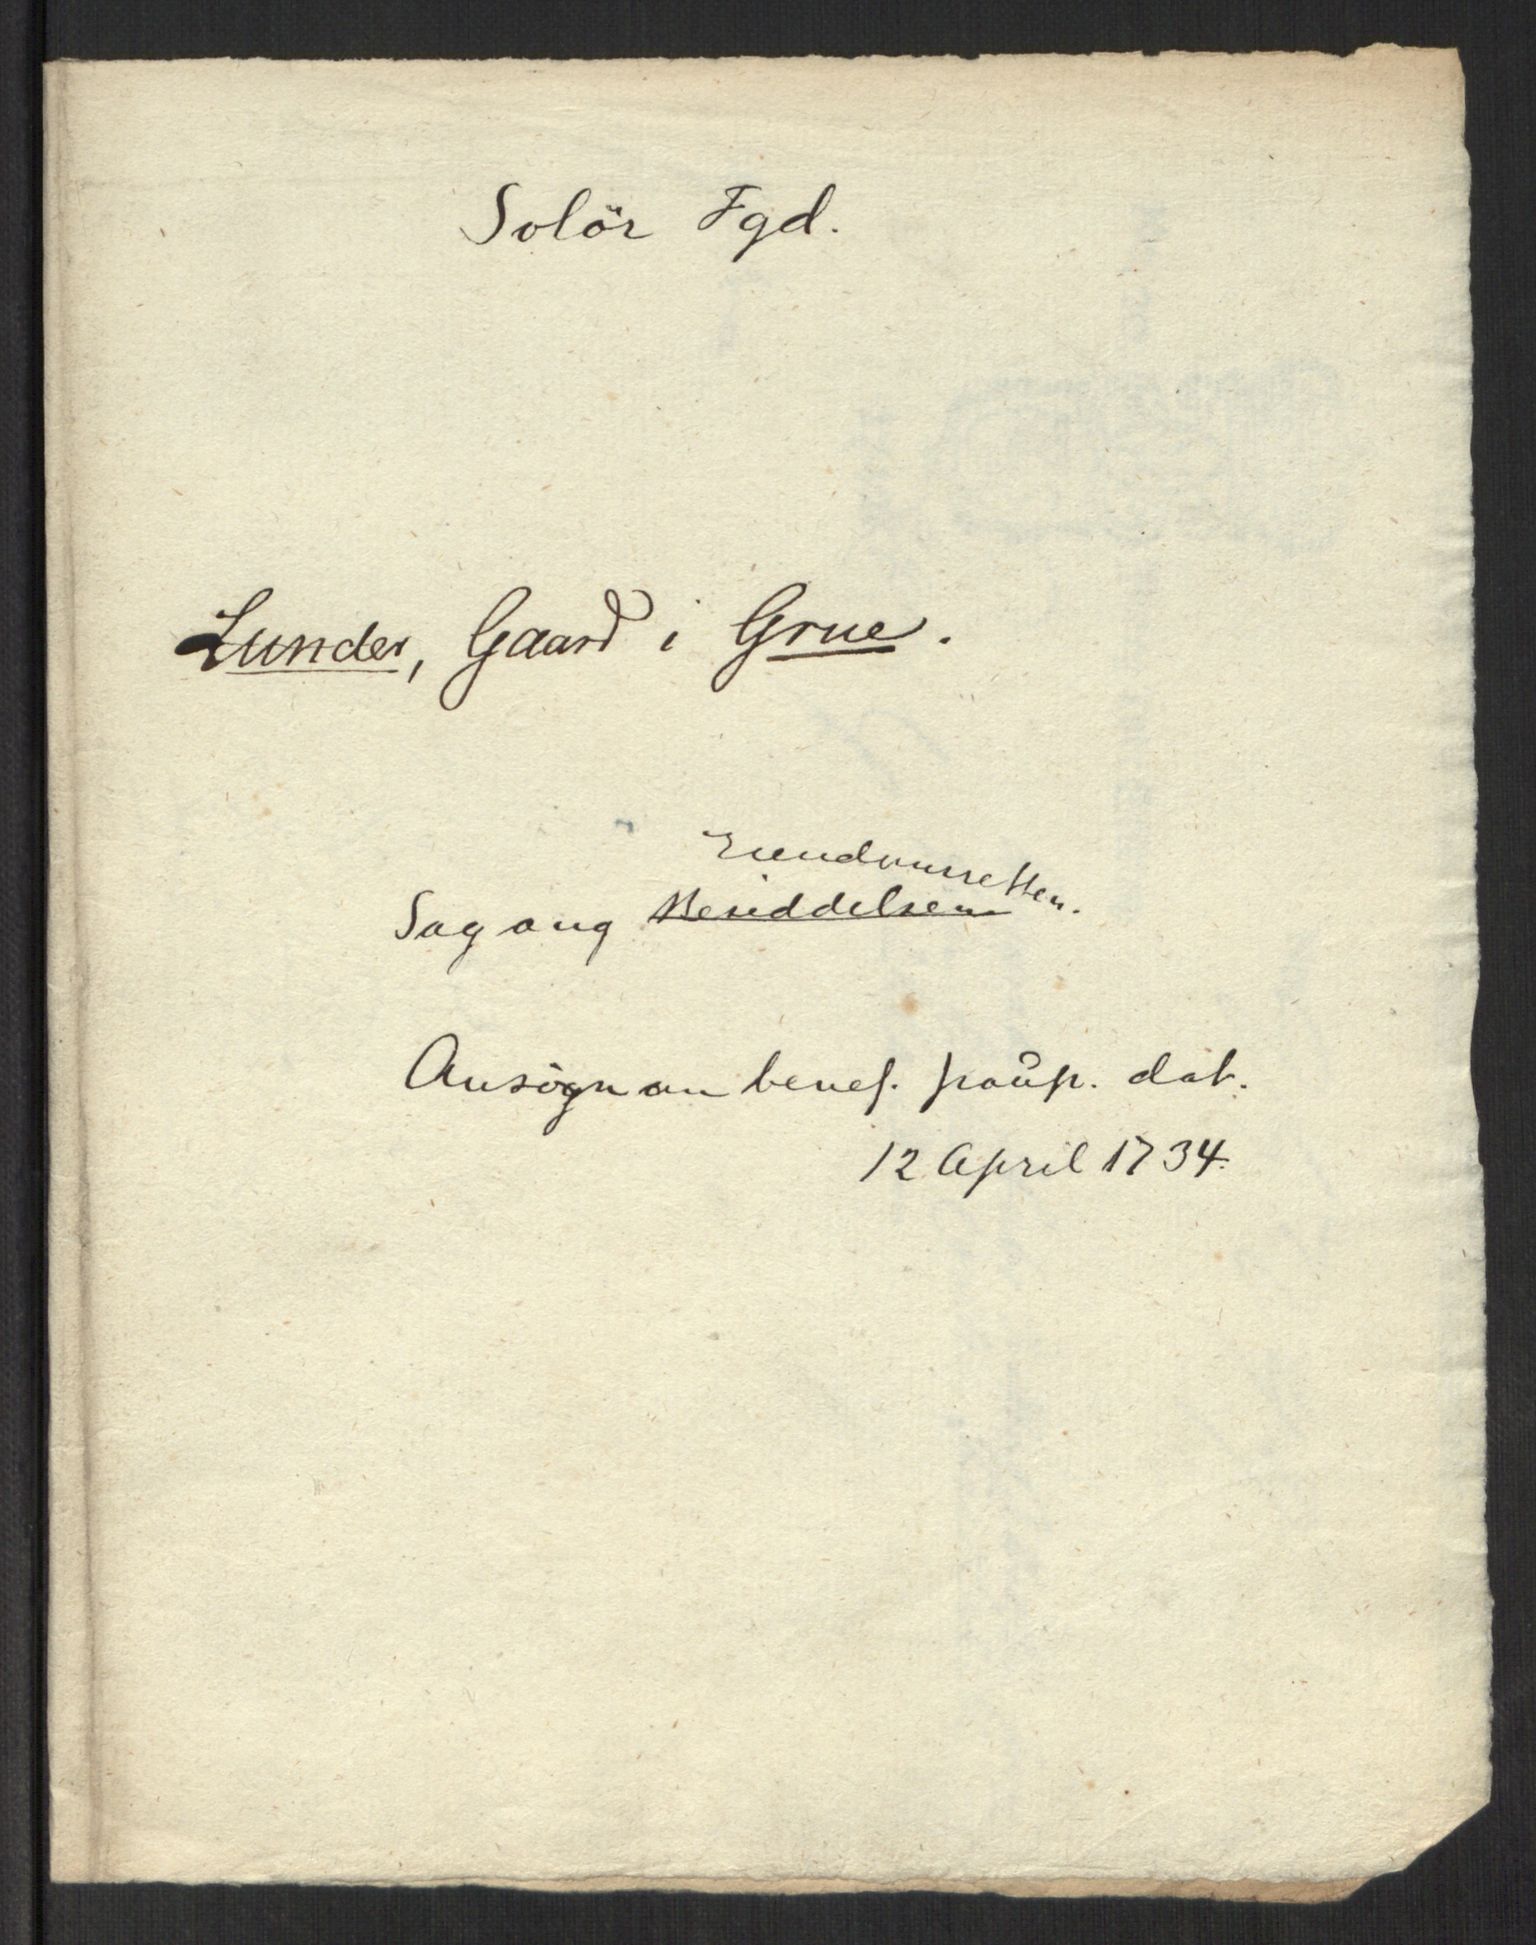 Solör Fgd.
Lunder, Gaard i Grue.
Eiendomsretten.
Sag ang Besiddelsen
Ansögn om benef. paup. dat.
12 April 1734.